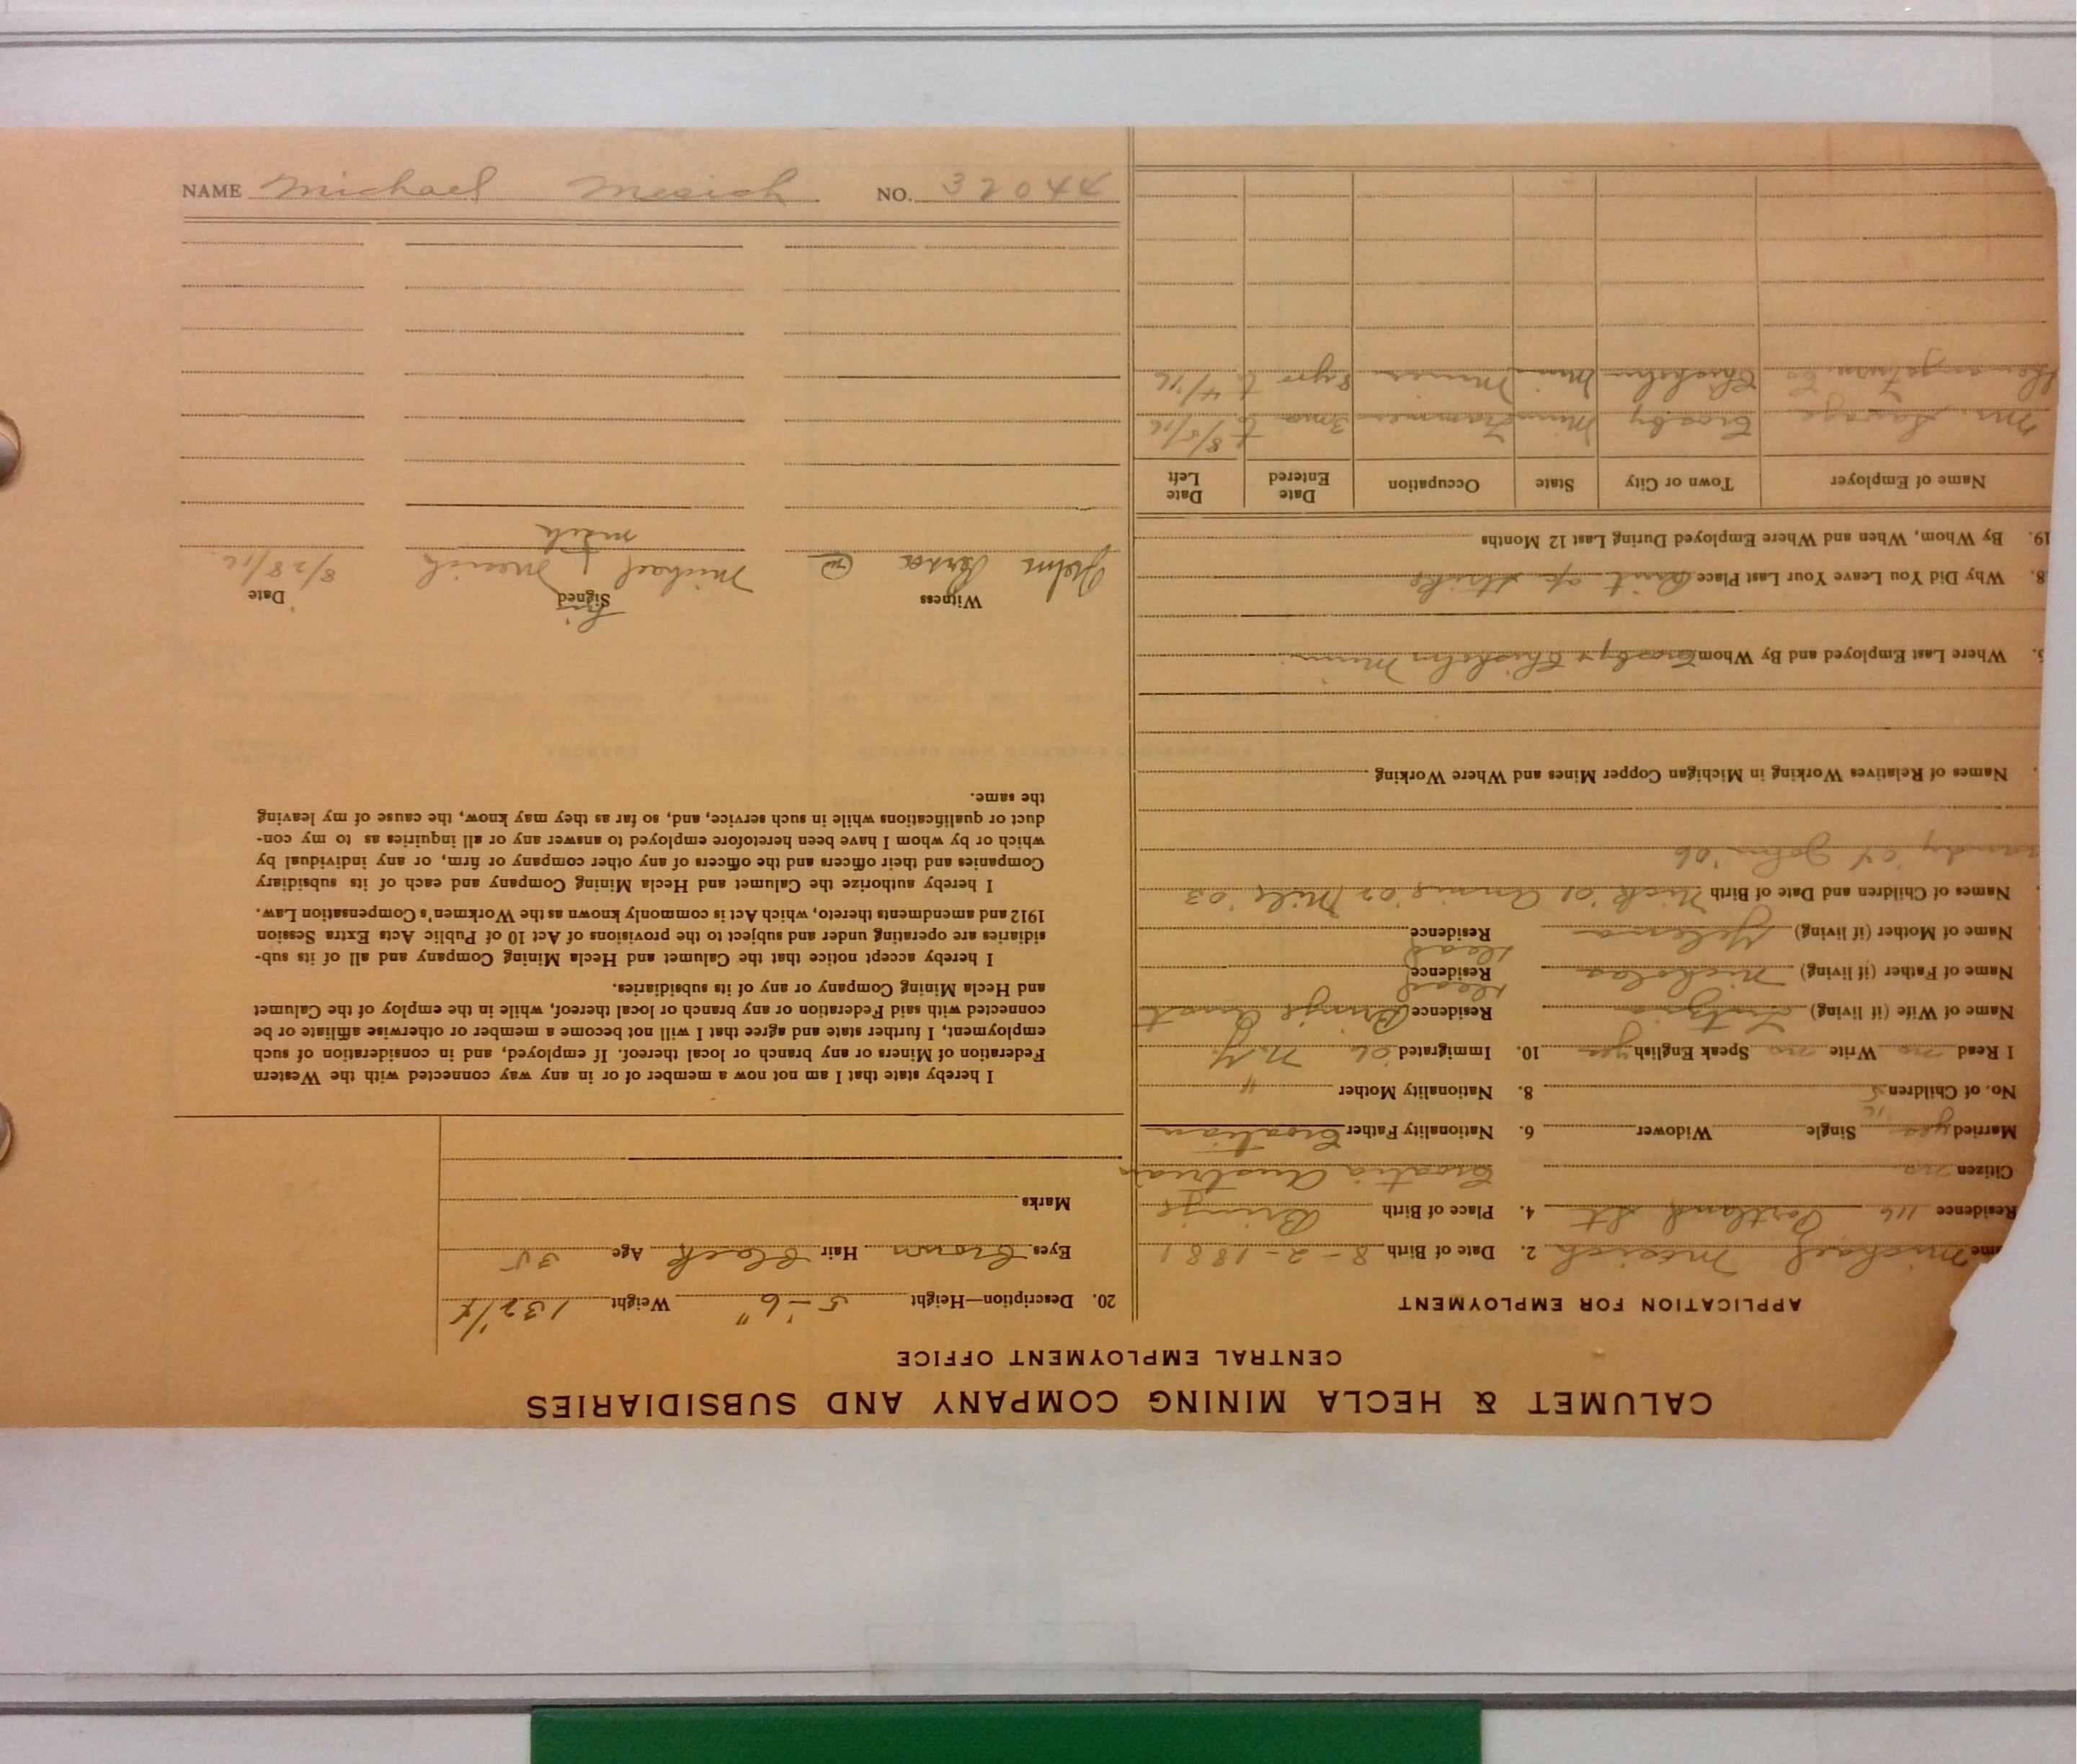 CALUMET & HECLA MINING COMPANY AND SUBSIDIARIES
CENTRAL EMPLOYMENT OFFICE
APPLICATION FOR EMPLOYMENT
me Michael Mesich 2. Date of Birth 8-2-1881
Residence 116 Portland St 4. Place of Birth Brinje
Citizen no Croatia Austria
Married yes Single Widower 6. Nationality Father Croatian
No. of Children 5 8. Nationality Mother "
I Read no Write no Speak English yes 10. Immigrated '06 N.Y.
Name of Wife (if living) Residence Brinje Aust
Name of Father (if living) Nicholas Residence dead
Name of Mother (if living) Helena Residence dead
Names of Children and Date of Birth Nick '01 Annie '02 Mile '03
'04 John '06
Names of Relatives Working in Michigan Copper Mines and Where Working
Where Last Employed and By Whom Crosby & Chisholm Minn
8. Why Did You Leave Your Last Place acct of strike
19. By Whom, When and Where Employed During Last 12 Months
Name of Employer Town or City State Occupation Date Entered Date Left
Mr. Savage Crosby Minn Trammer 3 mos to 8/5/16
Shenango Furn. Co Chisholm Minn Miner 8 yrs to 4/16
20. Description—Height 5-6" Weight 132 1/2
Eyes Brown Hair Black Age 35
Marks
I hereby state that I am not now a member of or in any way connected with the Western
Federation of Miners or any branch or local thereof. If employed, and in consideration of such
employment, I further state and agree that I will not become a member or otherwise affiliate or be
connected with said Federation or any branch or local thereof, while in the employ of the Calumet
and Hecla Mining Company or any of its subsidiaries.
I hereby accept notice that the Calumet and Hecla Mining Company and all of its sub-
sidiaries are operating under and subject to the provisions of Act 10 of Public Acts Extra Session
1912 and amendments thereto, which Act is commonly known as the Workmen's Compensation Law.
I hereby authorize the Calumet and Hecla Mining Company and each of its subsidiary
Companies and their officers and the officers of any other company or firm, or any individual by
which or by whom I have been heretofore employed to answer any or all inquiries as to my con-
duct or qualifications while in such service, and, so far as they may know, the cause of my leaving
the same.
Witness Signed Date
his
John Michael + Mesich 8/28/16
mark
NAME Michael Mesich NO. 32044